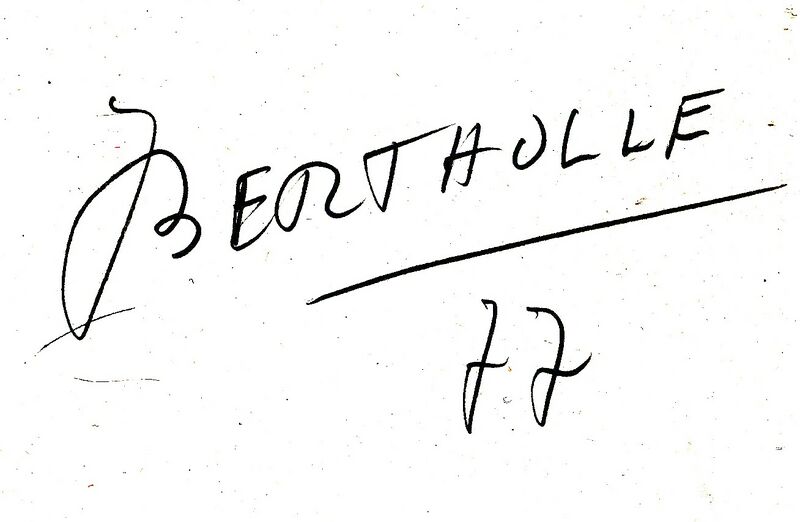 BERTHOLLE
77